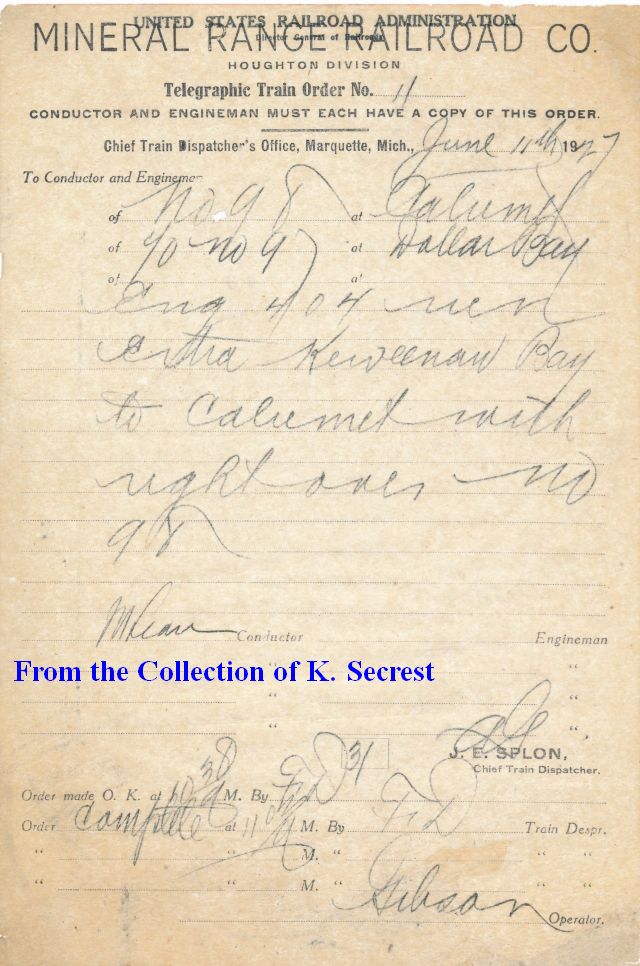 UNITED STATES RAILROAD ADMINISTRATION
Director General of Railroads
MINERAL RANGE RAILROAD CO.
HOUGHTON DIVISION
Telegraphic Train Order No. 11
CONDUCTOR AND ENGINEMAN MUST EACH HAVE A COPY OF THIS ORDER.
Chief Train Dispatcher's Office, Marquette, Mich., June 11th 1927
To Conductor and Engineman
of No 98 at Calumet
of No 97 at Dollar Bay
of at
Eng 404 run
extra Keweenaw Bay
to Calumet with
right over no
98
Conductor Engineman
From the Collection of K. Secrest
" "
" "
" "
J. E. SPLON,
Chief Train Dispatcher.
31
Order made O. K. at 10 38 M. By
Order Complete at 11 M. By Train Despr.
" " M. " " "
" " M. " " "
Gibson Operator.